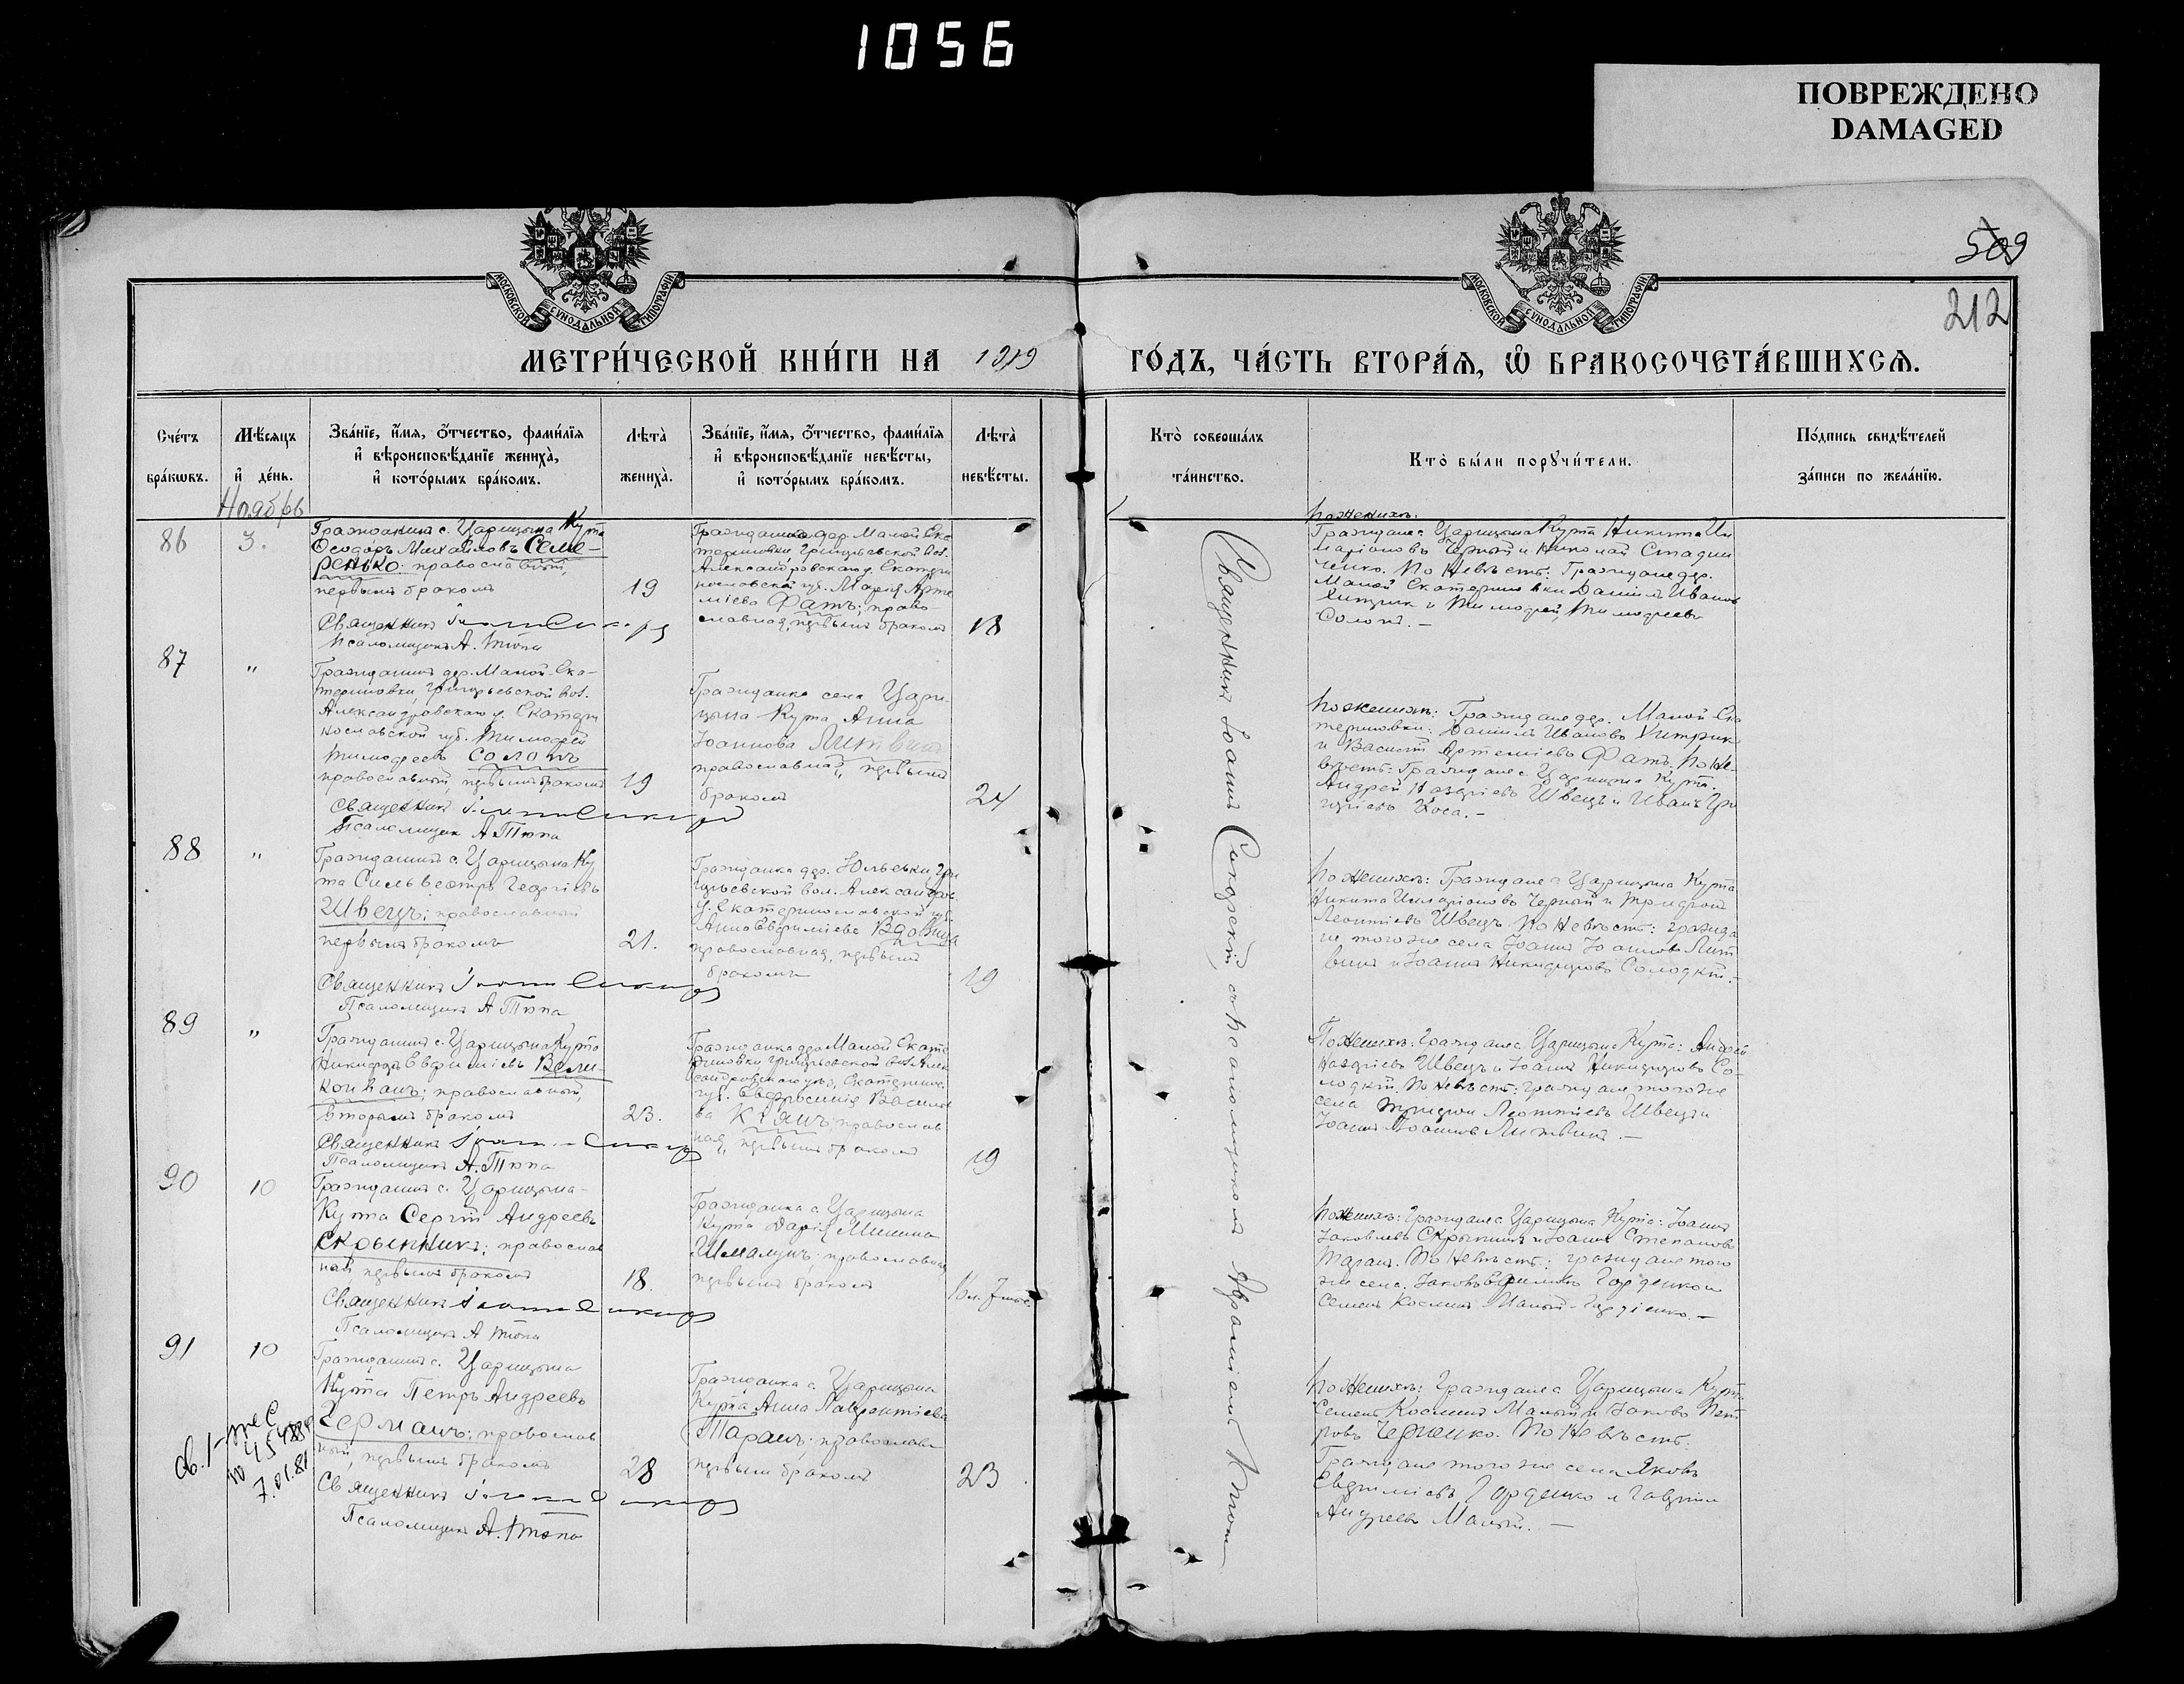 1056
ПОВРЕЖДЕНО
DAMAGED
509
212
МОСКОВСКОЙ СѴНОДАЛЬНОЙ ТИПОГРАФІИ
МОСКОВСКОЙ СѴНОДАЛЬНОЙ ТИПОГРАФІИ
МЕТРИ́ЧЕСКОЙ КНИ́ГИ НА 1919 ГО́ДЪ, ЧА́СТЬ ВТОРА́Я, Ѽ БРАКОСОЧЕТА́ВШИХСЯ.
Сче́тъ
бра́кѡвъ.
Мѣ́сяцъ
и҆ де́нь.
Зва́нїе, и҆́мя, ѻ҆́тчество, фами́лїя
и҆ вѣроисповѣ́данїе жениха̀,
и҆ кото́рымъ бра́комъ.
Лѣта̀
жениха̀.
Зва́нїе, и҆́мя, ѻ҆́тчество, фами́лїя
и҆ вѣроисповѣ́данїе невѣ́сты,
и҆ кото́рымъ бра́комъ.
Лѣта̀
невѣ́сты.
Кто̀ соверша́лъ
та́инство.
Кто̀ бы́ли порꙋчи́тели.
По́дпись свидѣ́телей
за́писи по жела́нїю.
Ноябрь
86
3.
Гражданинъ с. Царицына Кута
Ѳеодоръ Михайловъ Семе-
ренько; православный,
первымъ бракомъ
19
Священникъ
Псаломщикъ А. Тюпа
Гражданка дер. Малой Ека
териновки, Григорьевской вол.
Александровскаго у. Екатери
нославской губ. Марія Арте
міева Фатъ; право-
славная, первымъ бракомъ
18
По женихѣ:
Граждане с. Царицына Кута Никита Ил
ларіоновъ Черный и Николай Стадни
ченко. По невѣстѣ: Граждане дер.
Малой Екатериновки Даніилъ Ивановъ
Хитрик и Тимоѳей Тимоѳеевъ
Солопъ. –
87
"
Гражданинъ дер. Малой-Ека-
териновки, Григорьевской вол.
Александровскаго у. Екатери
нославской губ. Тимоѳей
Тимоѳеевъ Солопъ
православный, первымъ бракомъ
19
Священникъ
Псаломщикъ А Тюпа
Гражданка села Цари-
цына Кута Анна
Іоаннова Литвинъ
православная, первымъ
бракомъ
24
По женихѣ: Граждане дер. Малой Ека
териновки: Даніилъ Ивановъ Хитрик
и Василій Артеміевъ Фатъ. По не-
вѣстѣ: Граждане с. Царицына Кута:
Андрей Швецъ и Иванъ Гри
горьевъ Коса. –
88
"
Гражданинъ с. Царицына Ку
та Сильвестръ Георгіевъ
Швецъ; православный
первымъ бракомъ
21.
Священникъ
Псаломщикъ А Тюпа
Гражданка дер. Юльевки, Гри
горьевской вол. Александров.
у. Екатеринославской губ.
Анна Евфиміева Вдовина
православная, первымъ
бракомъ
19
По женихѣ: Граждане с. Царицына Кута
Никита Илларіоновъ Черный и Трифонъ
Леонтіевъ Швецъ. По невѣстѣ: гражда
не того же села Іоаннъ Іоанновъ Лит
винъ и Іоаннъ Никифоровъ Солодкій. –
89
"
Гражданинъ с. Царицына Кута
Никифоръ Евфиміевъ Вели-
коиванъ; православный,
вторымъ бракомъ
23.
Священникъ
Псаломщикъ А. Тюпа
Гражданка дер. Малой Екате
риновки, Григорьевской вол. Алек
сандровскаго уѣз., Екатеринос.
губ. Евфросинія Василье
ва Кіянъ; православ
ная, первымъ бракомъ
19
По женихѣ: граждане с. Царицына Кута: Андрей
Швецъ и Іоаннъ Никифоровъ Со-
лодкій. По невѣстѣ: граждане того же
села Трифонъ Леонтіевъ Швецъ и
Іоаннъ Іоанновъ Литвинъ. –
90
10
Гражданинъ с. Царицына-
Кута Сергій Андреевъ
Скрыпникъ; православ
ный, первымъ бракомъ
18.
Священникъ
Псаломщикъ А Тюпа
Гражданка с. Царицына
Кута Дарія Минина
Шмалунъ; православная
первымъ бракомъ
16 л. 7 мѣс.
По женихѣ: граждане с. Царицына Кута: Іоаннъ
Іаковлевъ Скрыпникъ и Іоаннъ Степановъ
Таранъ. По невѣстѣ: граждане того
же села: Іаковъ Евфиміевъ Гордіенко и
Семенъ Косминъ Малый-Гордіенко. –
91
10
Гражданинъ с. Царицына
Кута Петръ Андреевъ
Черманъ; православ
ный, первымъ бракомъ
28
Священникъ
Псаломщикъ А. Тюпа
Гражданка с. Царицына
Кута Анна Лаврентіева
Таранъ; православн
первымъ бракомъ
23
По женихѣ: граждане с. Царицына Кута:
Семенъ Косминъ Малый и Іаковъ Пет
ровъ Черненко. По невѣстѣ:
Граждане того же села Яковъ
Евфиміевъ Гордіенко и Гавріилъ
Андреевъ Малый. –
7.01.81
Священникъ Іоаннъ Сикорскій, съ псаломщикомъ Тюпа